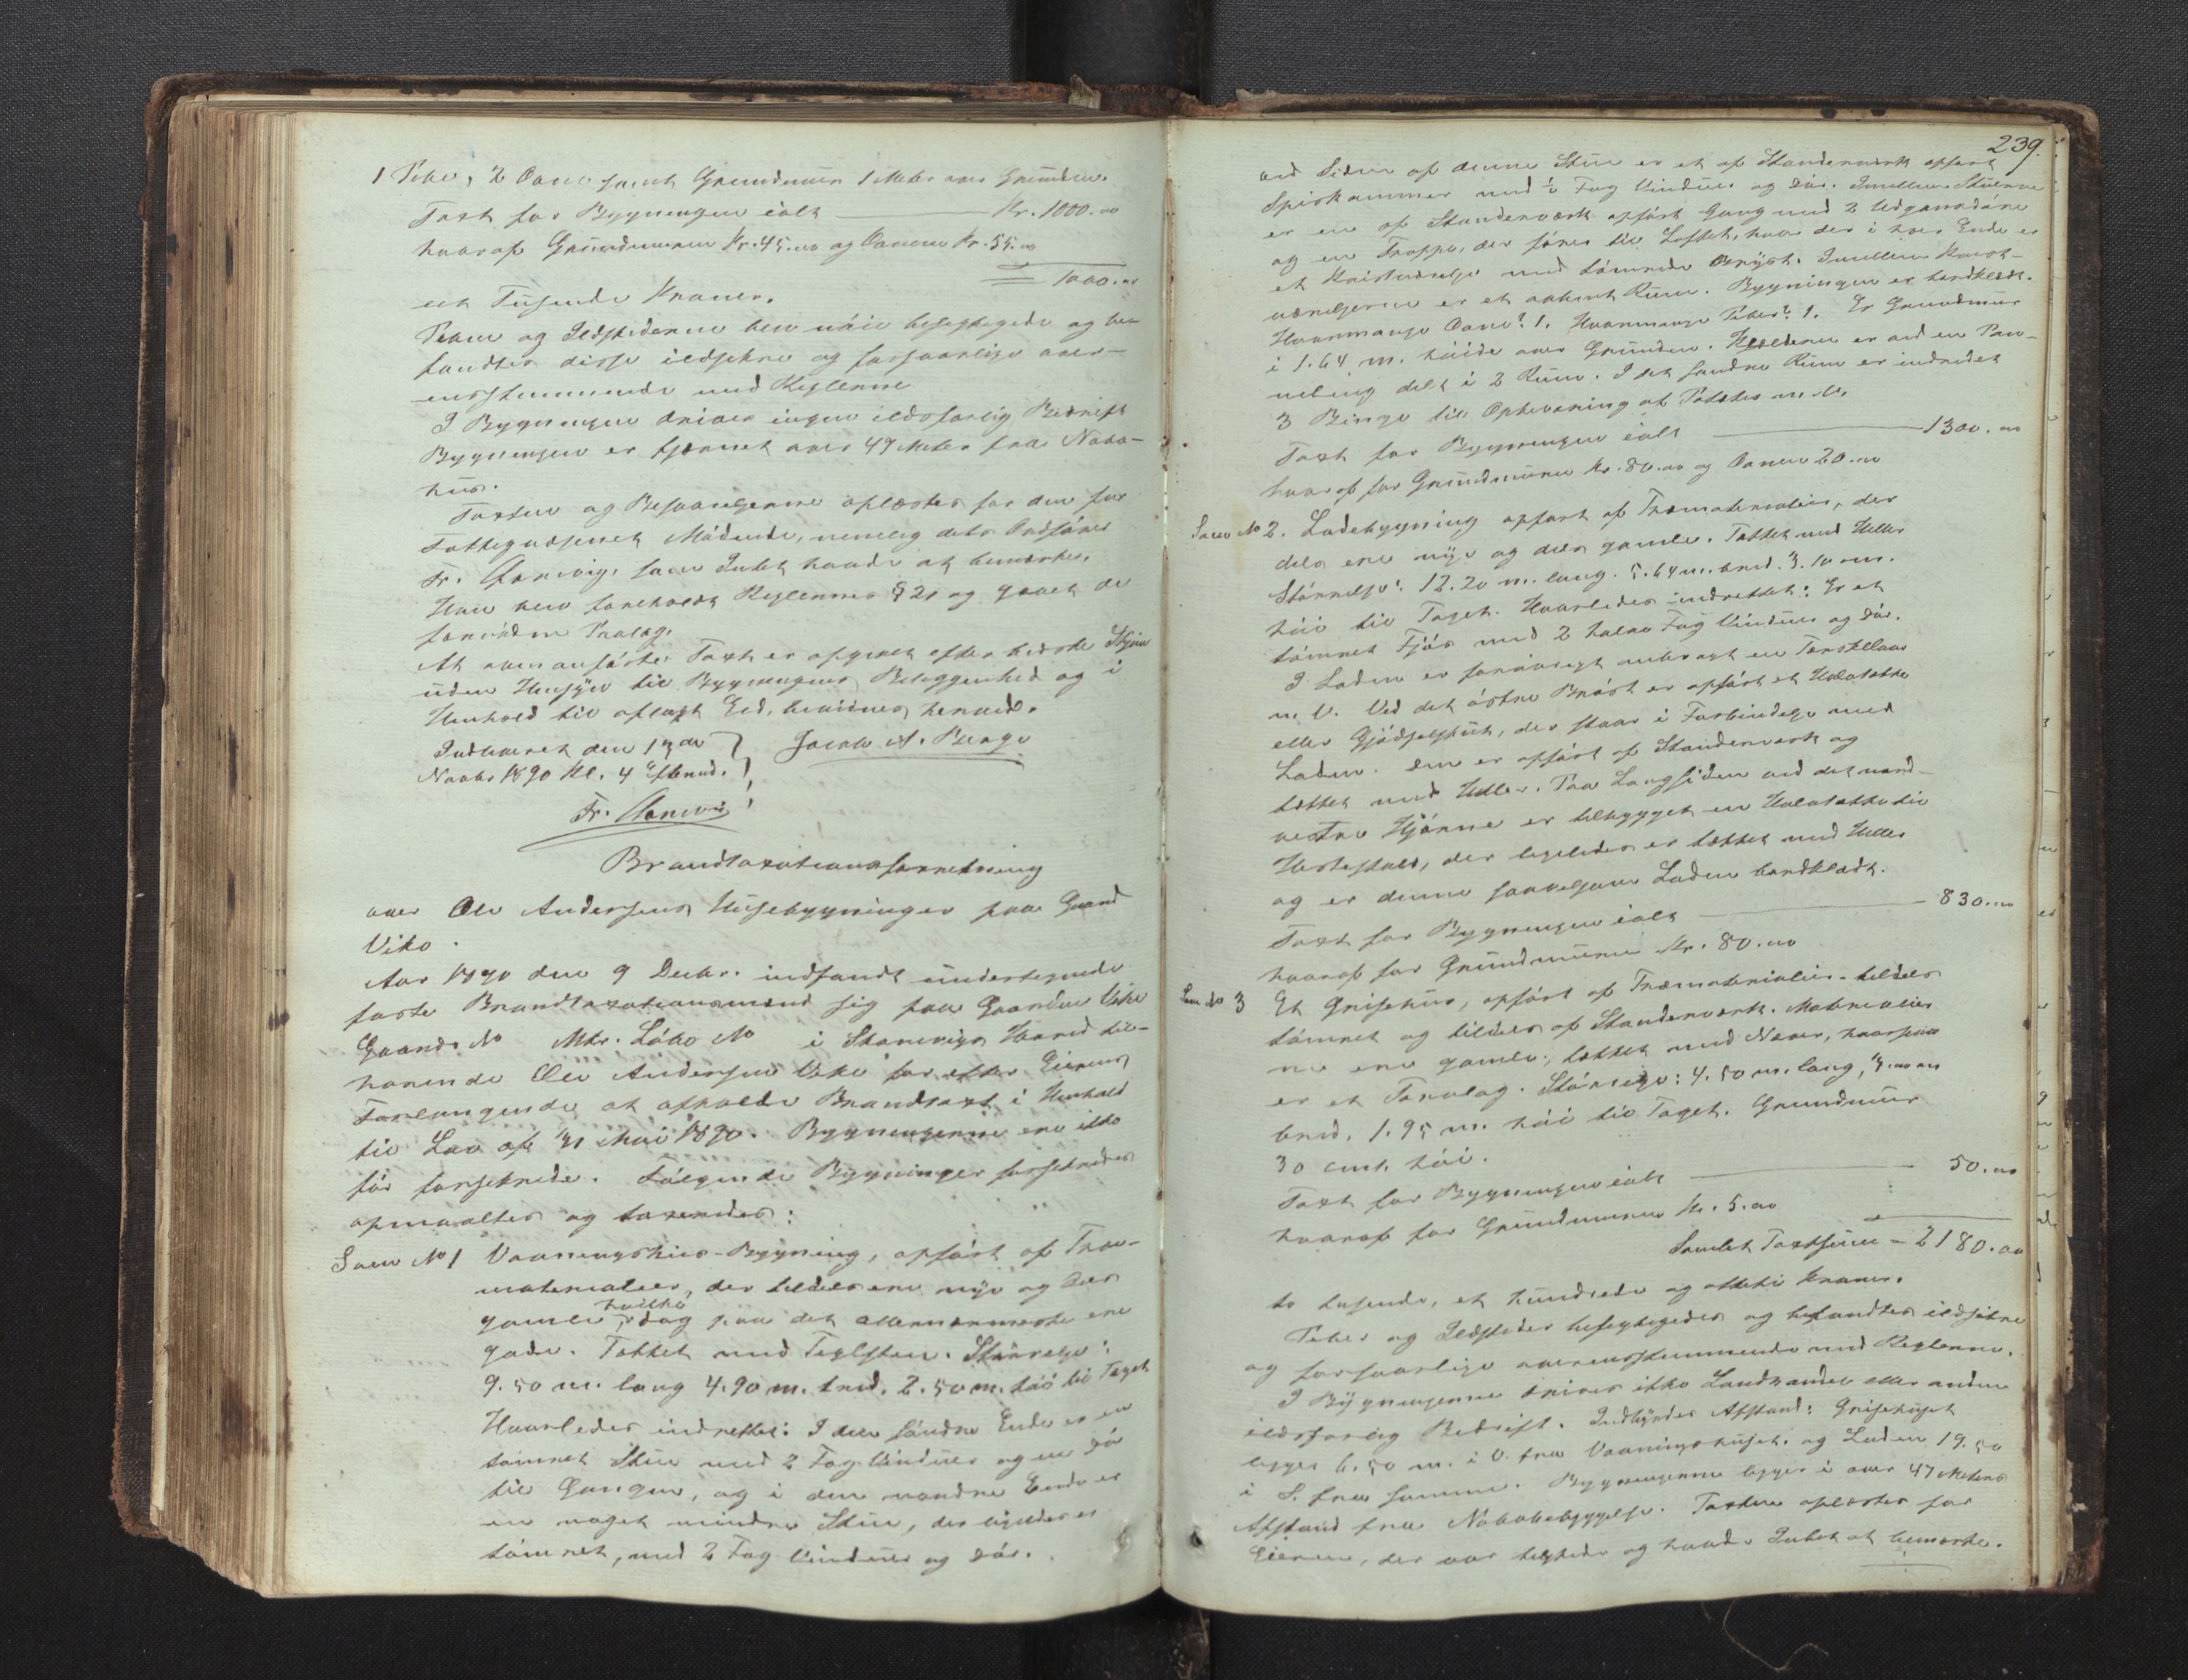 1 Pibe, 2 Ovne samt Grundmur 1 Meter over Grunden.
Taxt for Bygningen ialt Kr. 1000.00
hvoraf Grundmuren Kr. 45.00 og Ovnene Kr. 55.00
= 1000.00
eet Tusende Kroner.
Piben og Ildstederne blev nøie besigtigede og be-
fandtes disse ildsikre og forsvarlige over-
ensstemmende med Reglerne
I Bygningen drives ingen ildsfarlig Bedrift
Bygningen er fjernet over 47 Meter fra Nabo-
hus.
Taxten og Besvarelserne oplæstes for den for
Fattigvæsenet Mødende, nemlig dets Ordfører
Fr. som Intet havde at bemærke.
Han blev foreholdt Reglernes § 21 og gjort de
fornødne Paalæg.
At ovenanførte Taxt er afgivet efter bedste Skjøn
uden Hensyn til Bygningens Beliggenhed og i
Henhold til aflagt Eed, bevidnes herved.
Indleveret den 17de Jacob A. Berge
Novbr 1890 Kl. 4 Eftmd.
Fr.
Brandtaxationsforretning
over Ole Andersens Husebygninger paa Gaard
Vike.
Aar 1890 den 9 Decbr. indfandt undertegnede
faste Brandtaxationsmænd sig paa Gaarden Vike
Gaards No Mtr. Løbe No i Stamviks Herred til-
hørende Ole Andersen Vike for efter Eierens
Forlangende at afholde Brandtaxt i Henhold
til Lov af 31 Mai 1890. Bygningerne ere ikke
før forsikrede. Følgende Bygninger forsikredes
opmaaltes og taxeredes:
Litr No 1 Vaaningshus-Bygning, opført af Træ-
materialier, der tildels ere nye og dels
gamle, hvilke dog paa det allernærmeste ere
gode. Tækket med Teglsten. Størrelse:
9.50 m. lang 4.90 m. bred. 2.50 m. høi til Taget
Hvorledes indrettet: I den søndre Ende er en
tømret Stue med 2 Fag Vinduer og en Dør
til Gangen, og i den nordre Ende er
en noget mindre Stue, der ligeledes er
tømret, med 2 Fag Vinduer og Dør.
239.
ved Siden af denne Stue er et af Standerværk opført
Spiskammer med ½ Fag Vindue og Dør. Imellem Stuerne
er en af Standerværk opført Gang med 2 Udgangsdøre
og en Trappe, der fører til Loftet, hvor der i hver Ende er
et Kvistværelse med tømrede Bryst. Imellem Kvist-
værelserne er et aabent Rum. Bygningen er bordklædt.
Hvormange Ovne? 1. Hvormange Piber? 1. Er Grundmur
i 1.64 m. høide over Grunden. Kjelderen er ved en Pan-
neling delt i 2 Rum. I det søndre Rum er indredet
3 Binger til Opbevaring af Poteter m. M.
Taxt for Bygningen ialt 1300.00
hvoraf for Grundmuren Kr. 80.00 og Ovnen 20.00
No 2. Ladebygning opført af Træmaterialier, der
dels ere nye og dels gamle. Tækket med Heller
Størrelse: 12.20 m. lang. 5.64 m. bred. 3.10 m.
høi til Taget. Hvorledes indrettet: Er et
tømret Fjøs med 2 halve Fag Vinduer og Dør.
I Laden er forøvrigt anbragt en Tærskelaave
m. V. Ved det østre Brøst er opført et Halvtække
eller Gjødselskut, der staar i Forbindelse med
Laden. Den er opført af Standerværk og
tækket med Heller. Paa Langsiden ved det nord-
vestre Hjørne er tilbygget en Halvtække til
Hestestald, der ligeledes er tækket med Heller
og er denne saavelsom Laden bordklædt.
Taxt for Bygningen ialt 830.00
hvoraf for Grundmuren Kr. 80.00
No 3 Et Grisehus, opført af Træmaterialier tildels
tømret og tildels af Standerværk. Materialier-
ne ere gamle; tækket med Næver, hvorpaa
er et Torvlag. Størrelse: 4.50 m. lang, 3.00 m
bred, 1.95 m. høi til Taget. Grundmur
30 cmt. høi.
Taxt for Bygningen ialt 50.00
hvoraf for Grundmuren Kr. 5.00
Samlet Taxtsum - 2180.00
to tusende, et hundrede og otteti Kroner.
Piber og Ildsteder besigtigedes og befandtes ildsikre
og forsvarlige overensstemmende med Reglerne.
I Bygningerne drives ikke Landhandel eller anden
ildsfarlig Bedrift. Indbyrdes Afstand: Grisehuset
ligger 6.50 m. i V. fra Vaaningshuset og Laden 19.50
i S. fra samme. Bygningerne ligger i over 47 Meters
Afstand fra Nabobebyggelse. Taxten oplæstes for
Eieren, der var tilstede og havde Intet at bemærke.